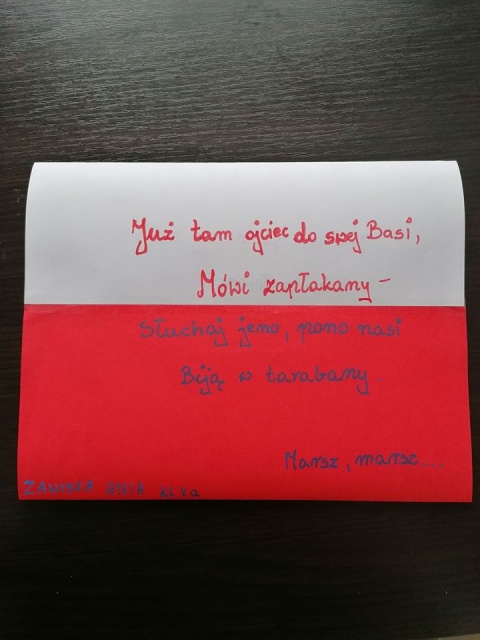 Już tam ojciec do swej Basi,
Mówi zapłakany -
Słuchaj jeno, pono nasi
Biją w tarabany.
Marsz, marsz...
ZAWISZA ANIA KL